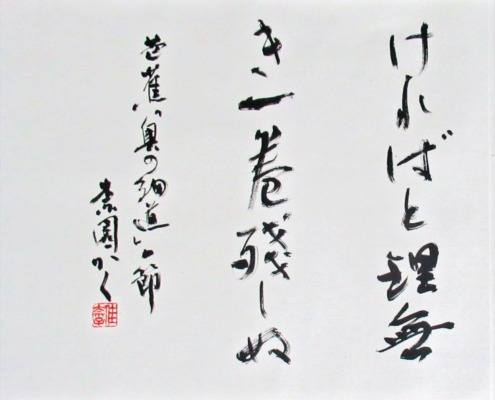 ければと理無
き一巻残しぬ
芭蕉「奥の細道」一節
素園かく